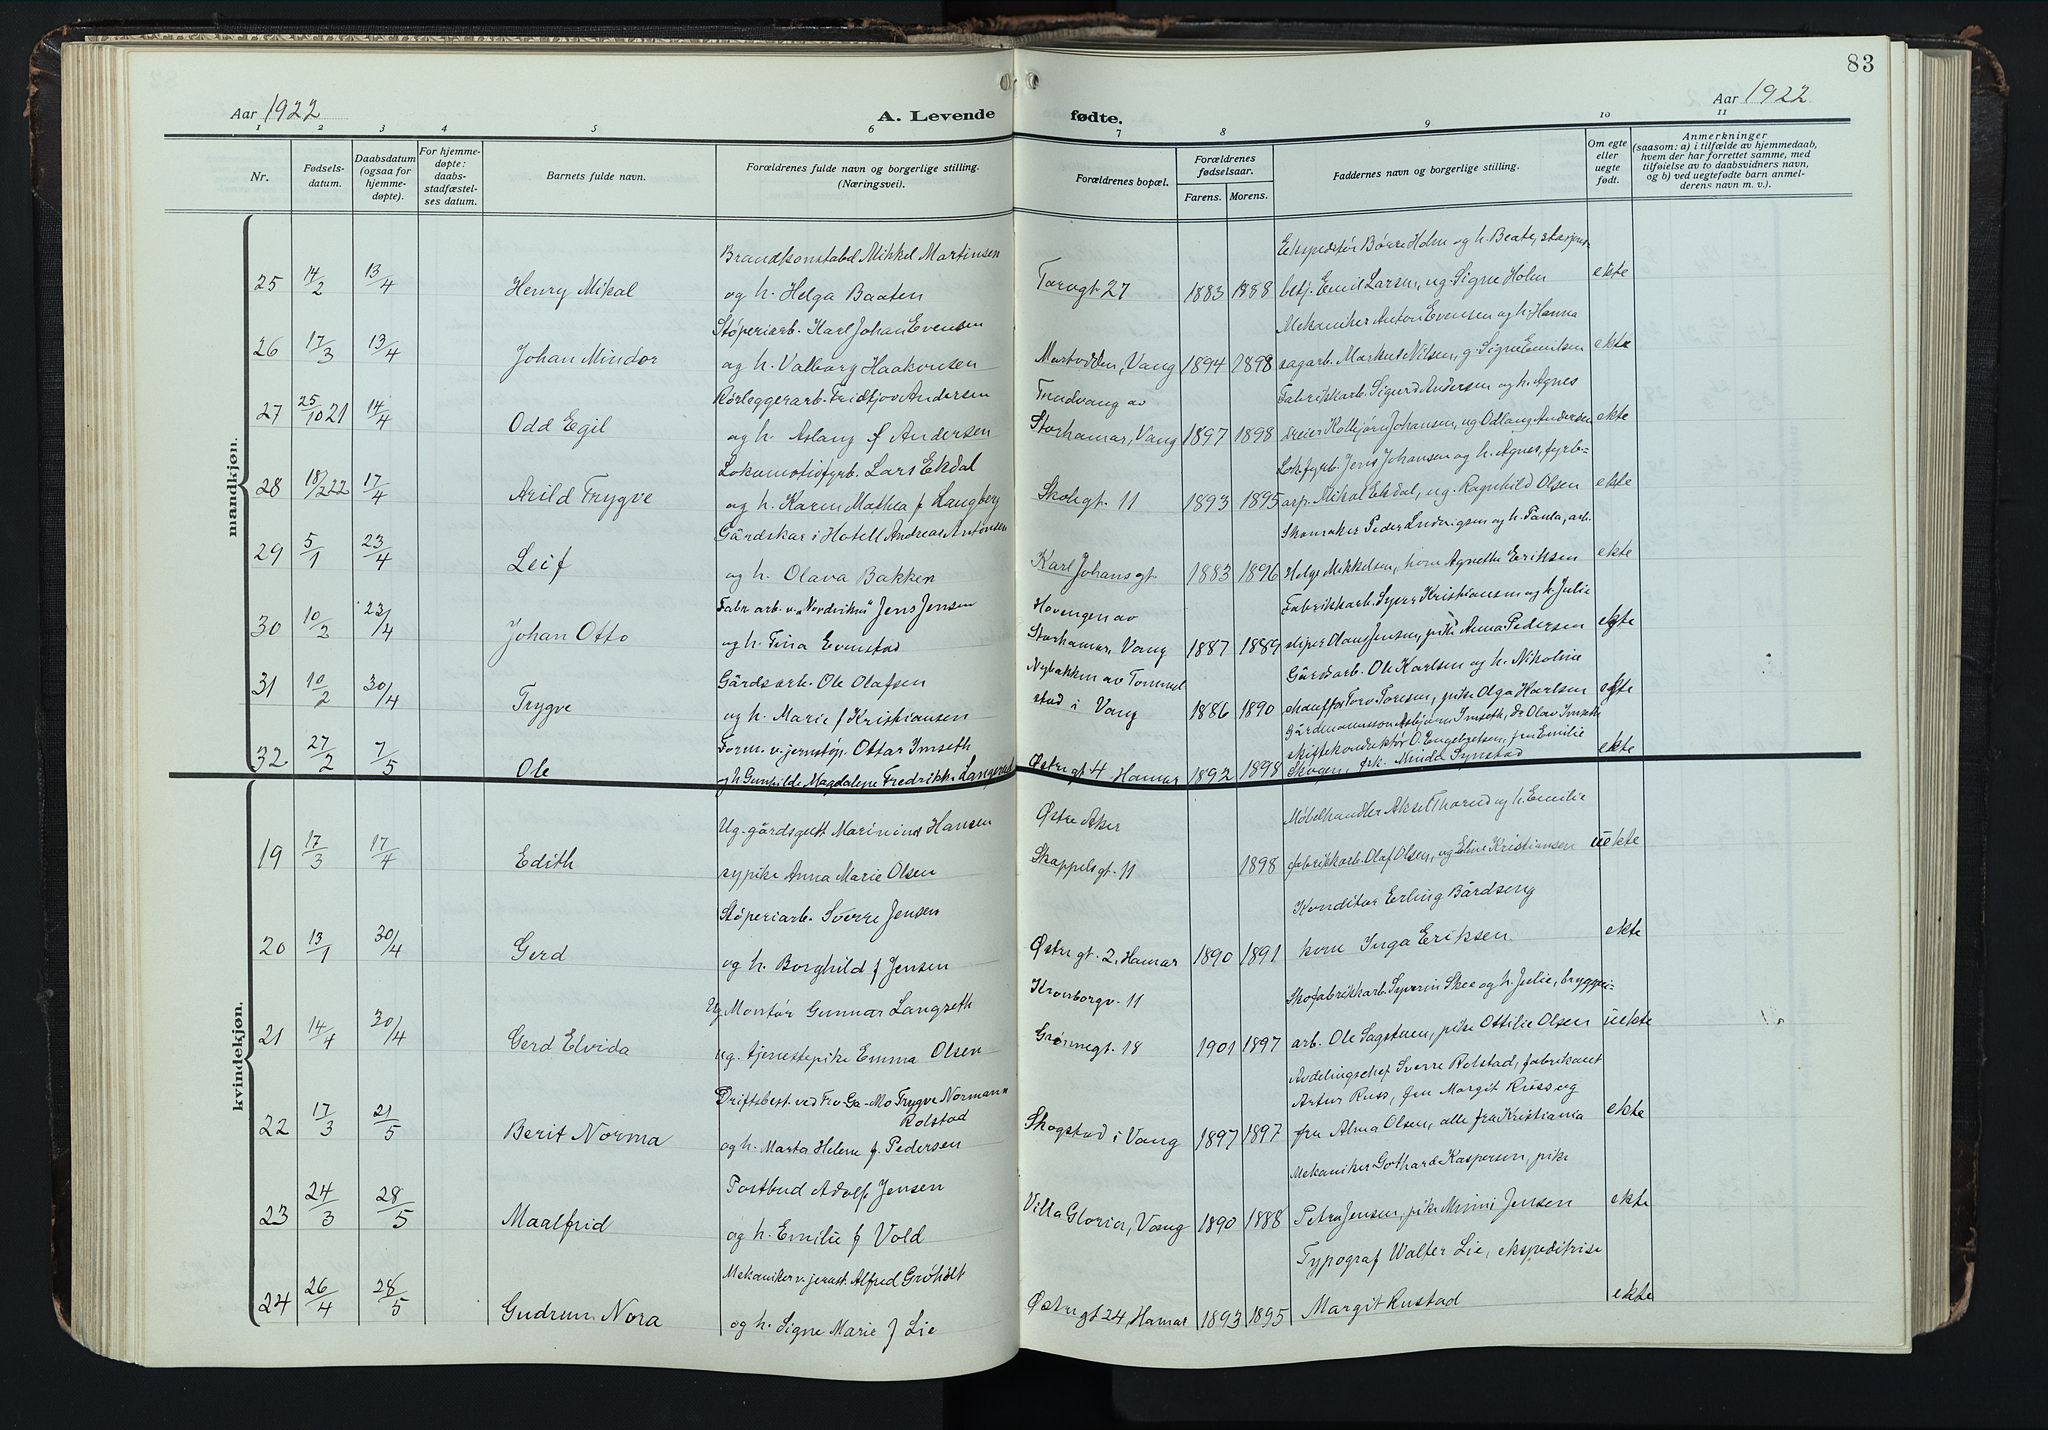 83
Aar 1922
A. Levende fødte.
Aar 1922
1 2 3 4 5 6 7 8 9 10 11
Nr.
Fødsels-
datum.
Daabsdatum
(ogsaa for
hjemme-
døpte).
For hjemme-
døpte:
daabs-
stadfæstel-
ses datum.
Barnets fulde navn.
Forældrenes fulde navn og borgerlige stilling.
(Næringsvei).
Forældrenes bopæl.
Forældrenes
fødselsaar.
Farens. Morens.
Faddernes navn og borgerlige stilling.
Om egte
eller
uegte
født.
Anmerkninger
(saasom: a) i tilfælde av hjemmedaab,
hvem der har forrettet samme, med
tilføielse av to daabsvidners navn,
og b) ved uegtefødte barn anmel-
derens navn m. v.).
mandkjøn.
Brandkonstabel Mikkel Martinsen Ekspeditør Børre Holm og h. Beate, stasjons-
25 14/2 13/4 Henry Mikal og h. Helga Baaten Torvgt 27 1883 1888 betj. Emil Larsen, ug. Signe Holm ekte
Støperiarb. Karl Johan Evensen Mekaniker Anton Evensen og h. Hanna
26 17/3 13/4 Johan Mindor og h. Valborg Haakonsen Martodden, Vang 1894 1898 sagarb. Markus Nilsen, g. Signe Emilsen ekte
Rørleggerarb. Fridtjov Andersen Trudvang av Fabrikkarb. Sigurd Andersen og h. Agnes
27 25/10 21 14/4 Odd Egil og h. Aslaug f Andersen Storhamar, Vang 1897 1898 dreier Kolbjørn Johansen, ug Odlaug Andersen ekte
Lokomotivfyrb. Lars Ekdal Lokfyrb. Jens Johansen og h. Agnes, fyrb-
28 18/2 22 17/4 Arild Trygve og h. Karen Mathea f Langberg Skolegt. 11 1893 1895 asp. Mikal Ekdal, ug. Ragnhild Olsen ekte
Gårdskar i Hotell Andreas Antonsen Skomaker Peder Ludvigsen og h. Paula, arb.
29 5/1 23/4 Leif og h. Olava Bakken Karl Johansgt. 1883 1896 Helge Mikkelsen, kone Agnethe Eriksen ekte
Fabr arb. v. "Nordviken" Jens Jensen Hovengen av Fabrikkarb. Syver Kristiansen og h. Julie
30 10/2 23/4 Johan Otto og h. Tina Evenstad Storhamar, Vang 1887 1889 sliper Olaus Jensen, pike Anna Pedersen ekte
Gårdsarb. Ole Olafsen Nybakken av Tommel- Gårdsarb. Ole Karlsen og h. Nikoline
31 10/2 30/4 Trygve og h. Marie f Kristiansen stad i Vang 1886 1890 chauffør Toresen, pike Olga Karlsen egte
Form. v. jernstøp. Ottar Imseth Gårdmannssøn Asbjørn Imseth, do Olav Imseth
skiftekonduktør O. Engebretsen, fru Emilie
32 27/2 7/5 Ole og h Gunhilde Magdalene Fredrikke Langerud Østregt 4 Hamar 1892 1898 Skogen, frk. Minda Synstad ekte
kvindekjøn.
Ug. gårdsgutt Marinius Hansen Østre Aker Møbelhandler Aksel Thorud og h. Emilie
19 17/3 17/4 Edith sypike Anna Marie Olsen Skappelsgt. 11 1898 fabrikkarb. Olaf Olsen, ug Eline Kristiansen uekte
Støperiarb. Sverre Jensen Konditor Erling Bårdseng
20 13/1 30/4 Gerd og h. Borghild f Jensen Østregt. 2, Hamar 1890 1891 kone Inga Eriksen ekte
Ug Montør Gunnar Langseth Kronborgv. 11 Skofabrikkarb. Syverin Skee og h. Julie, bryggeri-
21 14/4 30/4 Gerd Elvida ug. tjenestepike Emma Olsen Grønnegt. 18 1901 1897 arb. Ole Sagstuen, pike Ottilie Olsen uekte
Driftsbest. ved Fro-Ga-Mo Trygve Normann Rolstad Avdelingschef Sverre Rolstad, fabrikant
Artur Russ, fru Margit Russ og
22 17/3 21/5 Berit Norma og h. Marta Helene f. Pedersen Skogstad i Vang 1897 1897 fru Alma Olsen, alle fra Kristiania ekte
Postbud Adolf Jensen Mekaniker Gothard Kaspersen, pike
23 24/3 28/5 Maalfrid og h. Emilie f Vold Villa Gloria, Vang 1890 1888 Petra Jensen, pike Mimi Jensen ekte
Mekaniker v. jernst. Alfred Grøholt Typograf Walter Lie, ekspeditrise
24 26/4 28/5 Gudrun Nora og h. Signe Marie f Lie Østregt 24, Hamar 1893 1895 Margit Rustad ekte